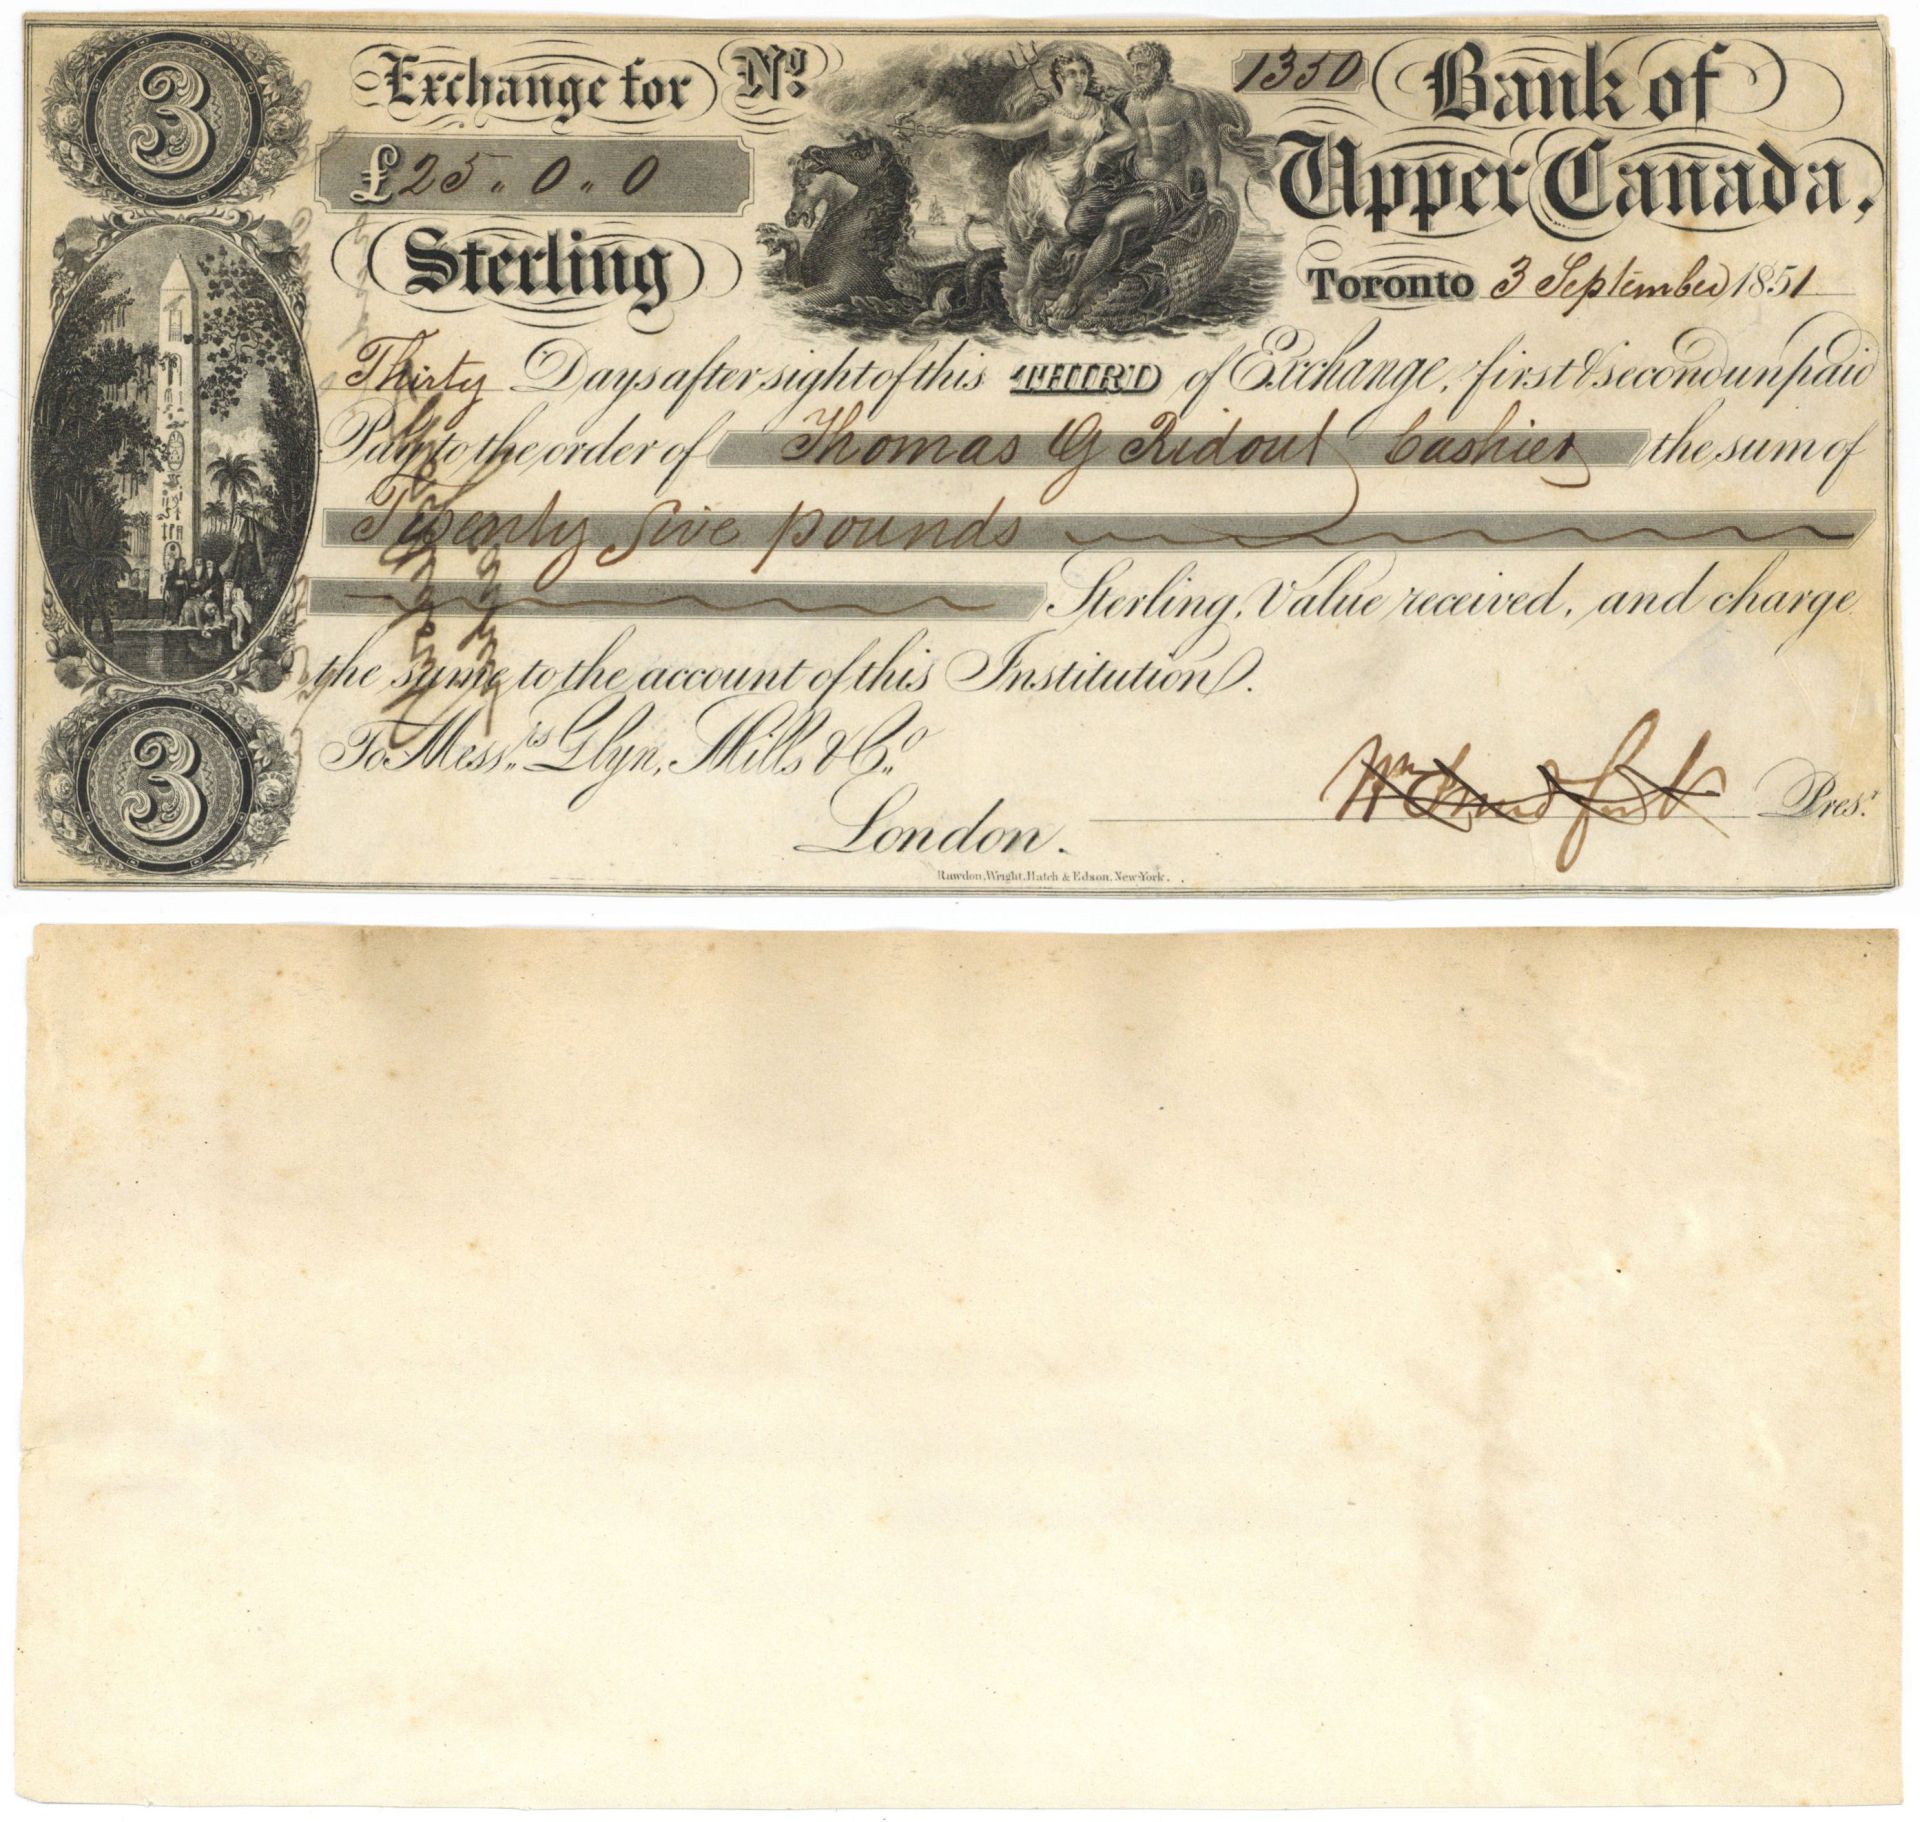 3
Exchange for
No.
1350
Bank of
Upper Canada,
£25 " 0 " 0
Sterling
Toronto 3 September 1851
Thirty Days after sight of this THIRD of Exchange, first & second unpaid
Pay to the order of Thomas G Ridout Cashier the sum of
Twenty five pounds
Sterling, Value received, and charge
the same to the account of this Institution.
To Messrs. Glyn, Mills & Co.
London.
Wm Pres.t
3
Rawdon, Wright, Hatch & Edson, New-York.